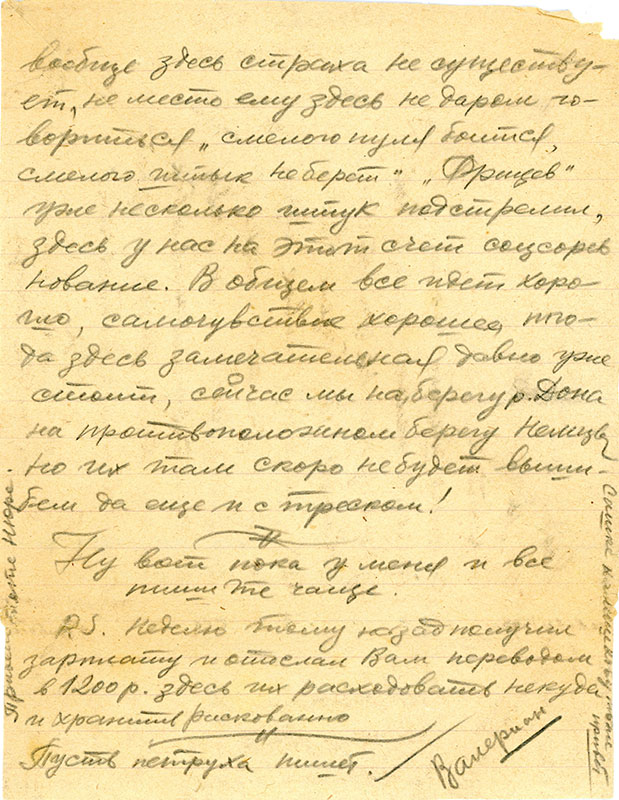 вообще здесь страха не существу-
ет, не место ему здесь не даром го-
вориться „смелого пуля боится,
смелого штык не берет" „Фрицев"
уже несколько штук подстрелил,
здесь у нас на этот счет соцсорев
нование. В общем все идет хоро-
шо, самочувствие хорошее, пого-
да здесь замечательная давно уже
стоит, сейчас мы на берегу р. Дона
на противоположном берегу немцы
но их там скоро не будет вышы-
бем да еще и с треском!
Ну вот пока у меня и все
пишите чаще.
P.S. Неделю тому назад получил
зарплату и отослал Вам переводом
в 1200 р. здесь их расходовать некуда
и хранить рискованно
Пусть петруха пишет.
Валериан
Привет тете Нюре.
Сашке тоже
привет